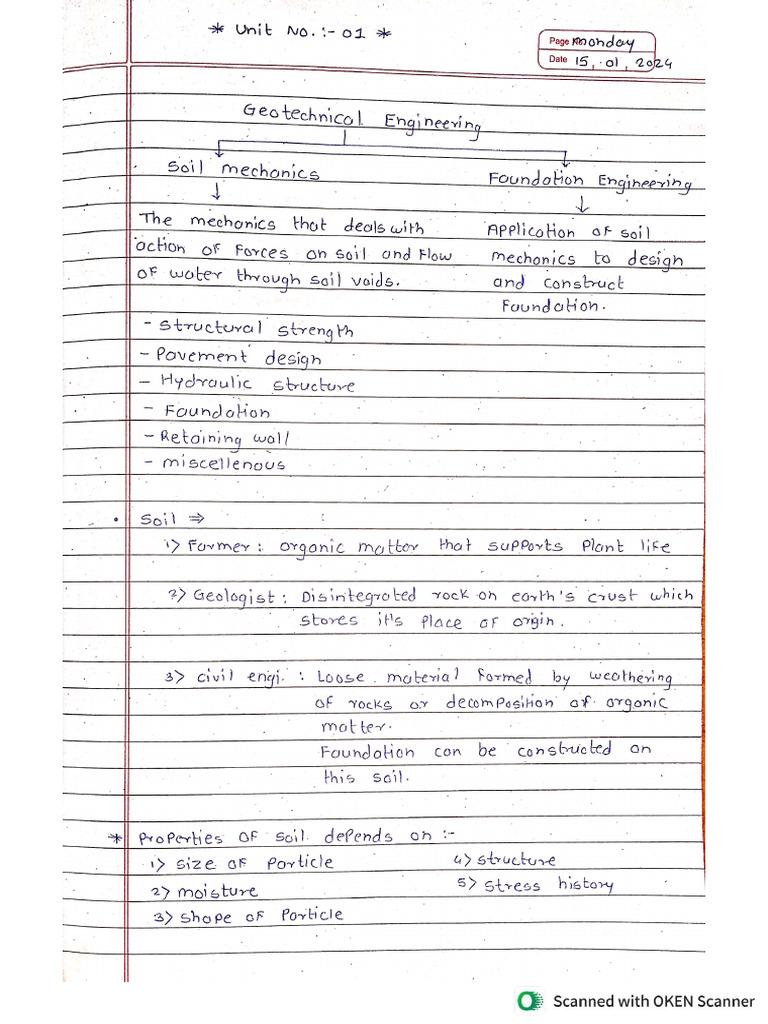 * Unit No.:- 01 *
Page No. monday
Date 15, 01, 2024
Geotechnical Engineering
Soil mechanics
Foundation Engineering
The mechanics that deals with
action of forces on soil and flow
of water through soil voids.
Application of soil
mechanics to design
and construct
Foundation.
- Structural strength
- Pavement design
- Hydraulic structure
- Foundation
- Retaining wall
- miscellenous
• Soil ⇒
1) Farmer : organic matter that supports plant life
2) Geologist : Disintegrated rock on earth's crust which
stores it's place of origin.
3) civil engi. : Loose material formed by weathering
of rocks or decomposition of organic
matter.
Foundation can be constructed on
this soil.
* Properties of soil depends on :-
1) size of particle
2) moisture
3) shape of particle
4) structure
5) stress history
Scanned with OKEN Scanner